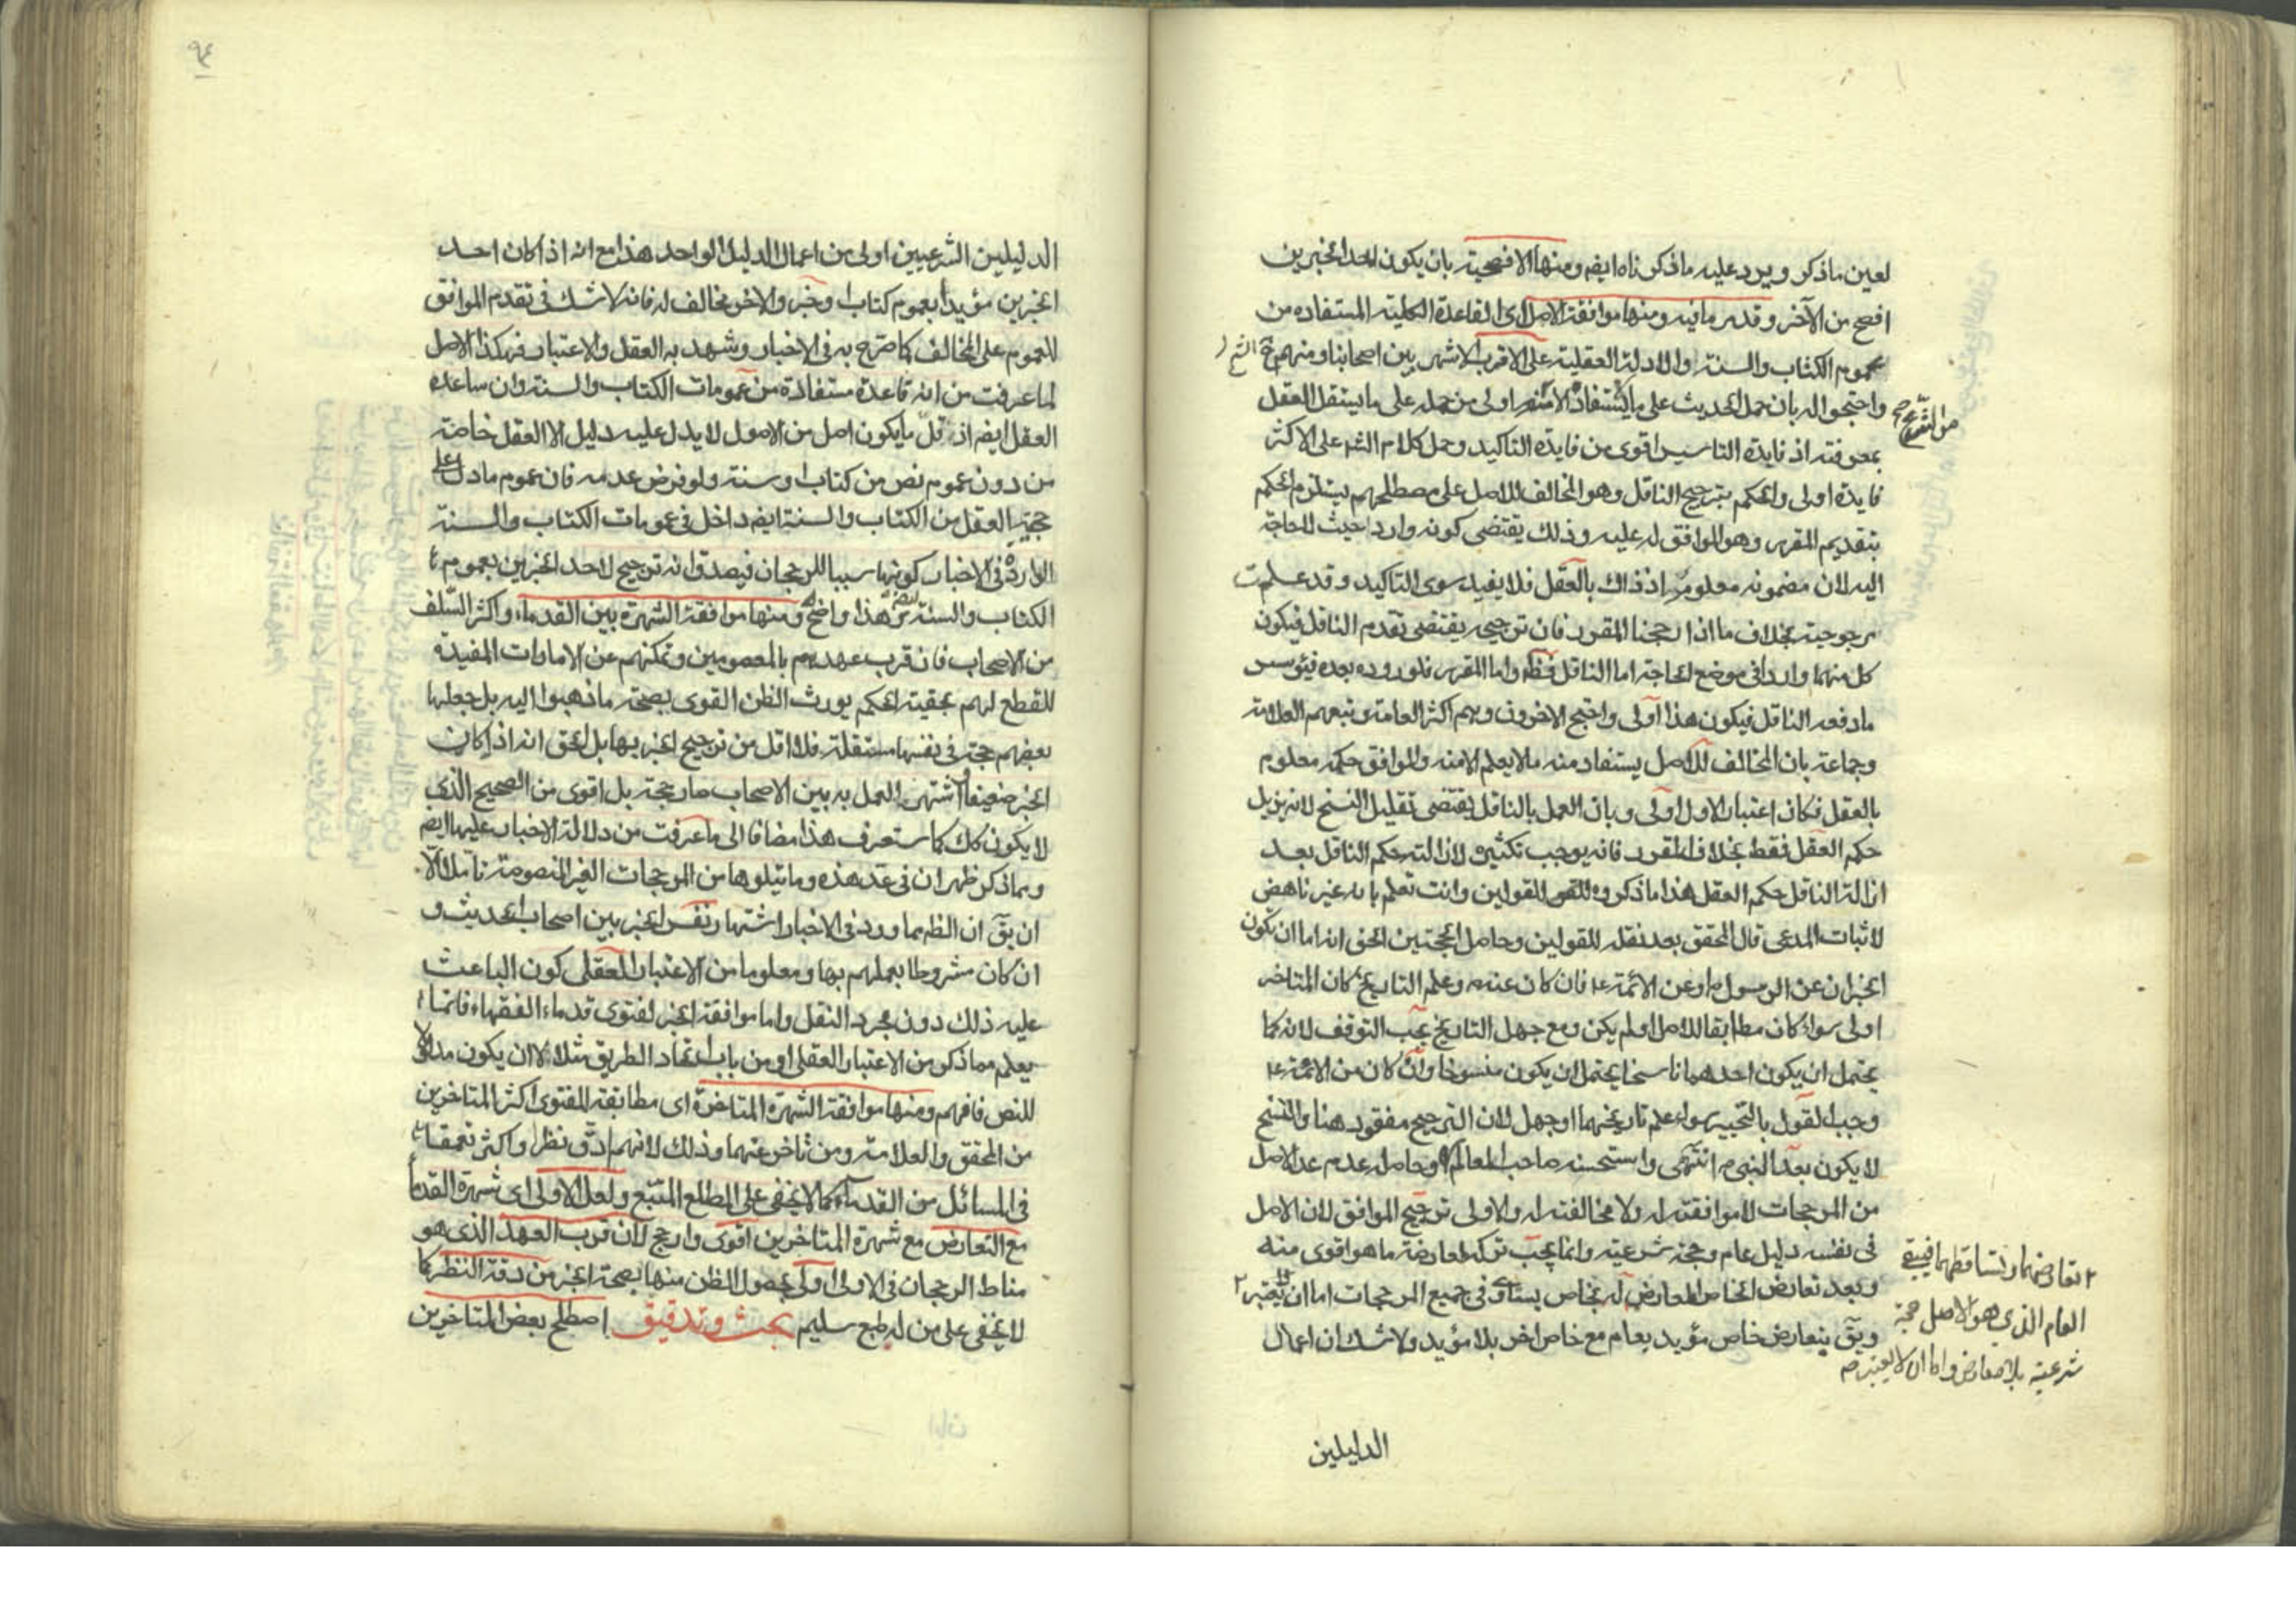 لعين ما ذكر ويرد عليه ما ذكرناه ايضم ومنها الافصحية بان يكون احد الخبرين
افصح من الآخر وقد مر ما فيه ومنها موافقة الاصل اى القاعدة الكلية المستفاده من
عموم الكتاب والسنة والادلة العقلية على الاقرب الاشهر بين اصحابنا ومنهم
واحتجوا له بان حمل الحديث على ما يستفاد الا منه اولى من حمله على ما يستقل العقل
من الشرع
بمعرفته اذ فايدة التاسيس اقوى من فايدة التاكيد وحمل كلام الشر على الاكثر
فايدة اولى والحكم بترجيح الناقل وهو المخالف للاصل على مصطلحهم يستلزم الحكم
بتقديم المقرر وهو الموافق له عليه وذلك يقتضى كونه واردا حيث لا حاجة
اليه لان مضمونه معلوم اذ ذاك بالعقل فلا يفيد سوى التاكيد وقد علمت
مرجوحيته بخلاف ما اذا رجحنا المقرر فان ترجيحه يقتضى تقدم الناقل فيكون
كل منهما واردا فى موضع الحاجة اما الناقل فظ واما المقرر فلوروده بعده فيؤسس
ما دفعه الناقل فيكون هذا اولى واحتج الاخرون وهم اكثر العامة وتبعهم العلامة
وجماعة بان المخالف للاصل يستفاد منه ما لا يعلم الا منه والموافق حكمه معلوم
بالعقل فكان اعتبار الاول اولى وبان العمل بالناقل يقتضى تقليل النسخ لانه يزيل
حكم العقل فقط بخلاف المقرر فانه يوجب تكثيره لازالته حكم الناقل بعد
ازالة الناقل حكم العقل هذا ما ذكروه للقولين وانت تعلم بانه غير ناهض
لاثبات المدعى قال المحقق بعد نقله للقولين وحاصل الحجتين الحق انه اما ان يكون
الخبران عن الرسول ص او عن الائمة ع فان كان عنه ص وعلم التاريخ كان المتاخر
اولى سواء كان مطابقا للاصل او لم يكن ومع جهل التاريخ يجب التوقف لانه كما
يحتمل ان يكون احدهما ناسخا يحتمل ان يكون منسوخا وان كان من الائمة ع
وجب القول بالتخيير سواء علم تاريخهما او جهل لان الترجيح مفقود هنا والنسخ
لا يكون بعد النبى ص انتهى واستحسنه صاحب المعالم وحاصله عدم عد الاصل
من المرجحات لا موافقته له ولا مخالفته له والاولى ترجيح الموافق لان الاصل
فى نفسه دليل عام وحجة شرعية وانما يجب تركه لمعارضة ما هو اقوى منه
وبعد تعارض الخاص المعارض له بخاص يساوى فى جميع المرجحات اما ان يعتبر ٢
ويق يتعارض خاص مؤيد بعام مع خاص اخر بلا مؤيد ولا شك ان اعمال
٢ تعارضهما وتساقطهما فيبقى
العام الذى هو الاصل حجة
شرعية بلا معارض واما ان لا يعتبر ص
الدليلين
٩٤
الدليلين الشرعيين اولى من اعمال الدليل الواحد هذا مع انه اذا كان احد
الخبرين مؤيدا بعموم كتاب او خبر والاخر مخالف له فانه لا شك فى تقدم الموافق
للعموم على المخالف كما صرح به فى الاخبار وشهد به العقل والاعتبار فهكذا الاصل
لما عرفت من انه قاعدة مستفادة من عمومات الكتاب والسنة وان ساعده
العقل ايضم اذ قل ما يكون اصل من الاصول لا يدل عليه دليل الا العقل خاصة
من دون عموم نص من كتاب او سنة ولو فرض عدمه فان عموم ما دل على
حجية العقل من الكتاب والسنة ايضم داخل فى عمومات الكتاب والسنة
الواردة فى الاخبار كونها سببا للرجحان فيصدق انه ترجيح لاحد الخبرين بعموم
الكتاب والسنة وهذا واضح ومنها موافقة الشهرة بين القدماء واكثر السلف
من الاصحاب فان قرب عهدهم بالمعصومين وتمكنهم عن الامارات المفيدة
للقطع لهم بحقية الحكم يورث الظن القوى بصحة ما ذهبوا اليه بل جعلها
بعضهم حجة فى نفسها مستقلة فلا اقل من ترجيح الخبر بها بل الحق انه اذا كان
الخبر ضعيفا واشتهر العمل به بين الاصحاب صار حجة بل اقوى من الصحيح الذى
لا يكون كك كما ستعرف هذا مضافا الى ما عرفت من دلالة الاخبار عليها ايضم
وبما ذكر ظهر ان فى عد هذه وما يتلوها من المرجحات الغير المنصوصة تاملا الا
ان يق ان الظم مما ورد فى الاخبار اشتهار نفس الخبر بين اصحاب الحديث و
ان كان مشروطا بعملهم بها ومعلوما من الاعتبار العقلى كون الباعث
عليه ذلك دون مجرد النقل واما موافقة الخبر لفتوى قدماء الفقهاء فانما
يعلم مما ذكر من الاعتبار العقلى او من باب اتحاد الطريق مثلا لا ان يكون مدلولا
للنص فافهم ومنها موافقة الشهرة المتاخرة اى مطابقة الفتوى اكثر المتاخرين
من المحقق والعلامة ومن تاخر عنهما وذلك لانهم ادق نظرا واكثر تعمقا
فى المسائل من القدماء كما لا يخفى على المطلع المتتبع ولعل الاولى اى شهرة القدماء
مع التعارض مع شهرة المتاخرين اقوى وارجح لان قرب العهد الذى هو
مناط الرجحان فى الاولى اولى بحصول الظن منها بصحة الخبر من دقة النظر كما
لا يخفى على من له طبع سليم بحث وتدقيق اصطلح بعض المتاخرين